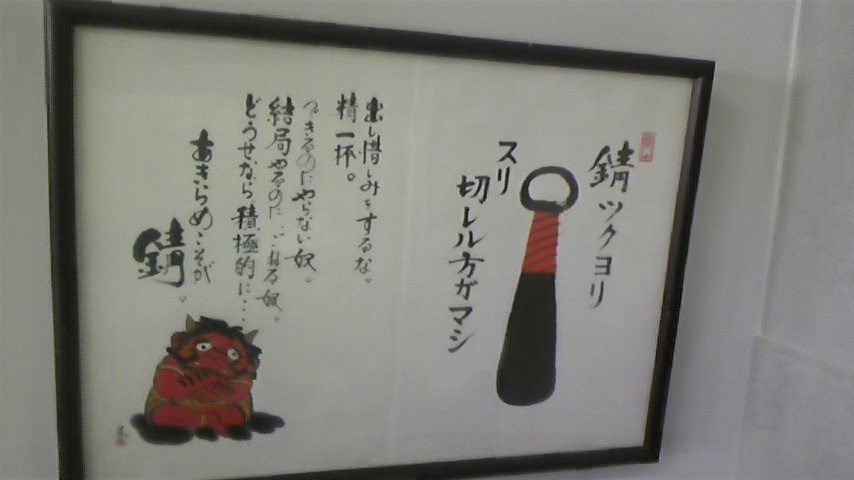 錆ツクヨリ
スリ
切レル方ガマシ
出し惜しみをするな。
精一杯。
できるのにやらない奴。
結局やるのに…こねる奴。
どうせなら積極的に…
あきらめこそが
錆。